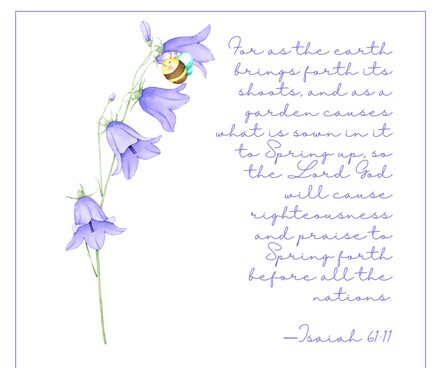 For as the earth
brings forth its
shoots, and as a
garden causes
what is sown in it
to Spring up, so
the Lord God
will cause
righteousness
and praise to
Spring forth
before all the
nations.
—Isaiah 61:11